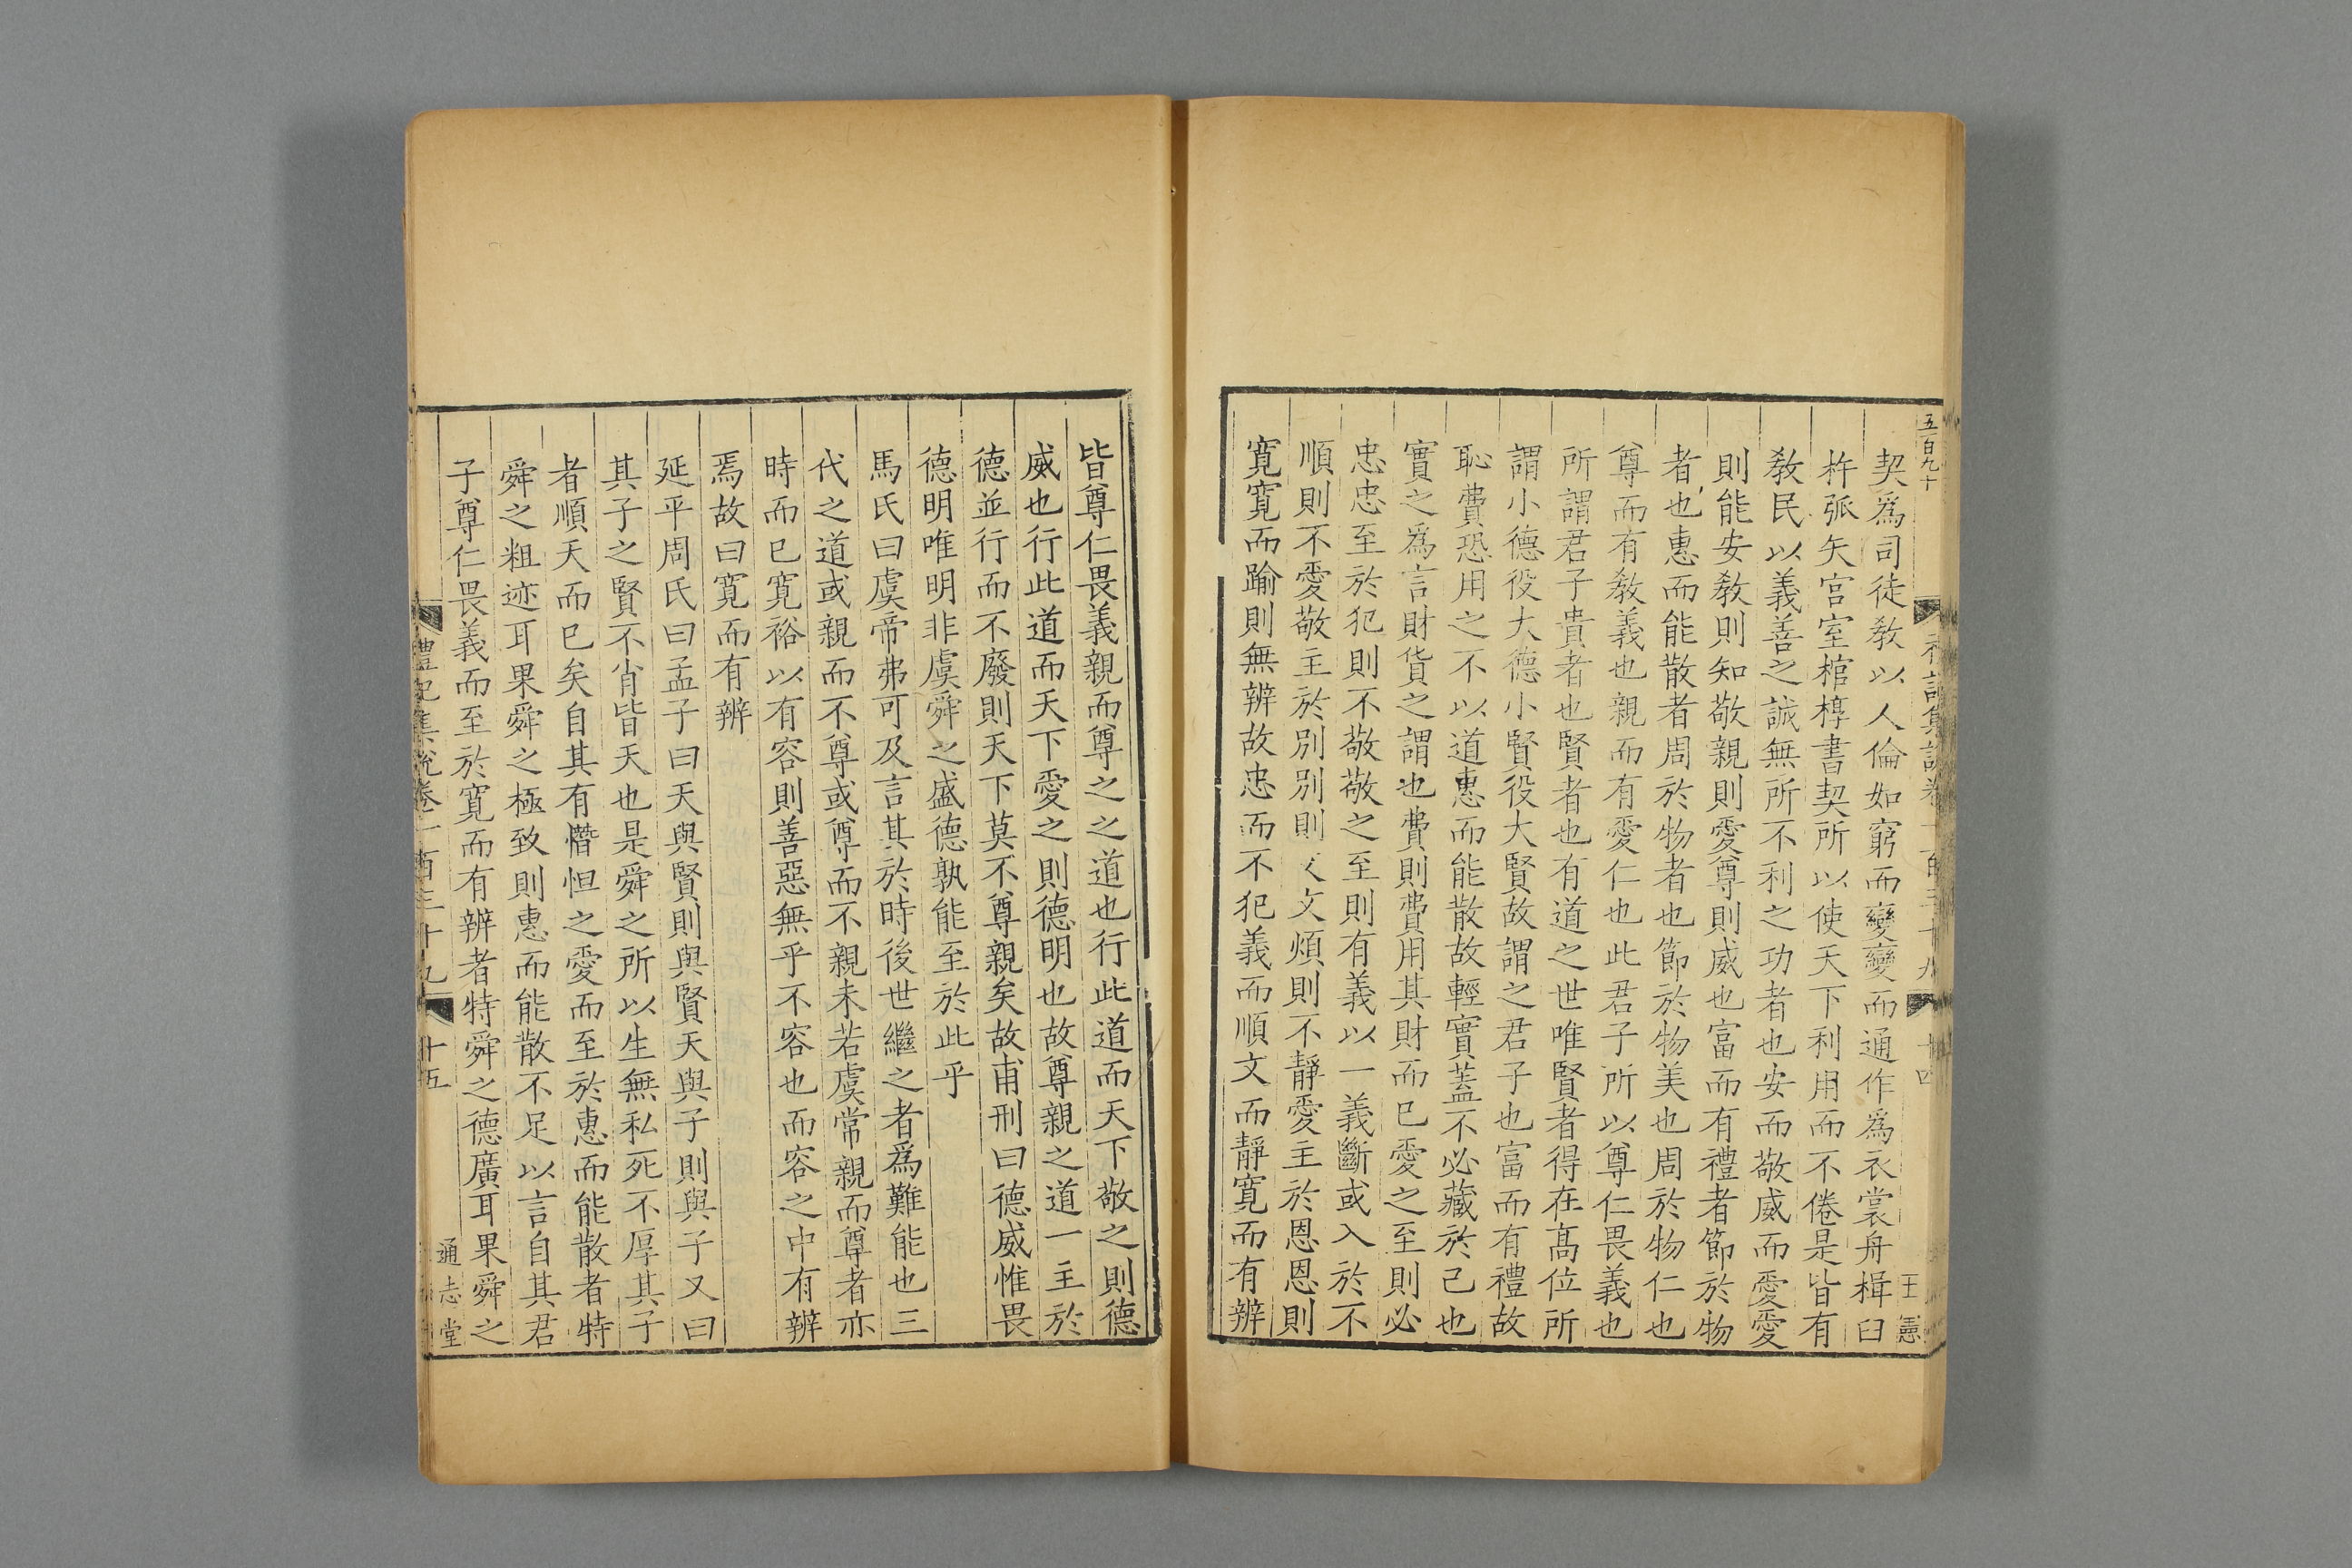 五百九十
王憲
契爲司徒敎以人倫如窮而變變而通作爲衣裳舟楫臼
杵弧矢宮室棺椁書契所以使天下利用而不倦是皆有
敎民以義善之誠無所不利之功者也安而敬威而愛愛
則能安敎則知敬親則愛尊則威也富而有禮者節於物
者也惠而能散者周於物者也節於物美也周於物仁也
尊而有敎義也親而有愛仁也此君子所以尊仁畏義也
所謂君子貴者也賢者也有道之世唯賢者得在高位所
謂小德役大德小賢役大賢故謂之君子也富而有禮故
恥費恐用之不以道惠而能散故輕實蓋不必藏於己也
實之爲言財貨之謂也費則費用其財而已愛之至則必
忠忠至於犯則不敬敬之至則有義以一義斷或入於不
順則不愛敬主於別別則文文煩則不靜愛主於恩恩則
寬寬而踰則無辨故忠而不犯義而順文而靜寬而有辨
皆尊仁畏義親而尊之之道也行此道而天下敬之則德
威也行此道而天下愛之則德明也故尊親之道一主於
德並行而不廢則天下莫不尊親矣故甫刑曰德威惟畏
德明唯明非虞舜之盛德孰能至於此乎
馬氏曰虞帝弗可及言其於時後世繼之者爲難能也三
代之道或親而不尊或尊而不親未若虞帝親而尊者亦
時而已寬裕以有容則善惡無乎不容也而容之中有辨
焉故曰寬而有辨
延平周氏曰孟子曰天與賢則與賢天與子則與子又曰
其子之賢不肖皆天也是舜之所以生無私死不厚其子
者順天而已矣自其有憯怛之愛而至於惠而能散者特
舜之粗迹耳果舜之極致則惠而能散不足以言自其君
子尊仁畏義而至於寬而有辨者特舜之德廣耳果舜之
禮記集說卷一百三十九
十五
通志堂